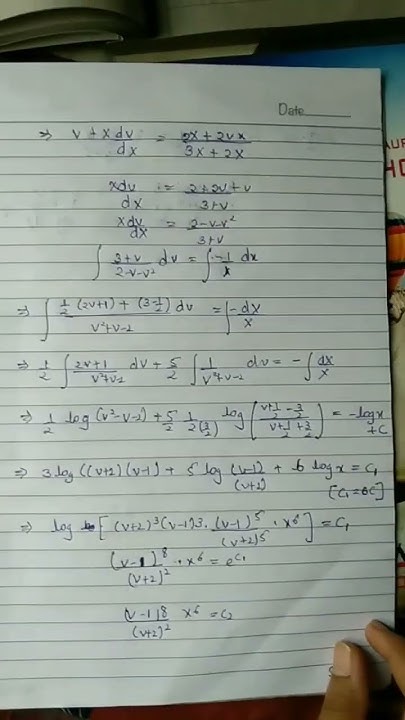 Date
⇒ v + x dv/dx = (2x + 2vx)/(3x + 2x)
xdv/dx = (2+2v+v)/(3+v)
xdv/dx = (2-v-v²)/(3+v)
∫ (3+v)/(2-v-v²) dv = ∫ -1/x dx
⇒ ∫ (½(2v+1) + (3-½) dv)/(v²+v-2) = ∫ -dx/x
⇒ ½ ∫ (2v+1)/(v²+v-2) dv + 5/2 ∫ 1/(v²+v-2) dv = -∫ dx/x
⇒ ½ log(v²-v-2) + 5/2 1/(2(3/2)) log[(v+½-3/2)/(v+½+3/2)] = -logx + C
⇒ 3log((v+2)(v-1) + 5 log (v-1)/(v+2) + 6 logx = C₁
[C₁=6C]
⇒ log [(v+2)³(v-1)3. (v-1)⁵/(v+2)⁵ · x⁶] = C₁
(v-1)⁸/(v+2)² · x⁶ = e^C₁
(v-1)8/(v+2)² x⁶ = C₂